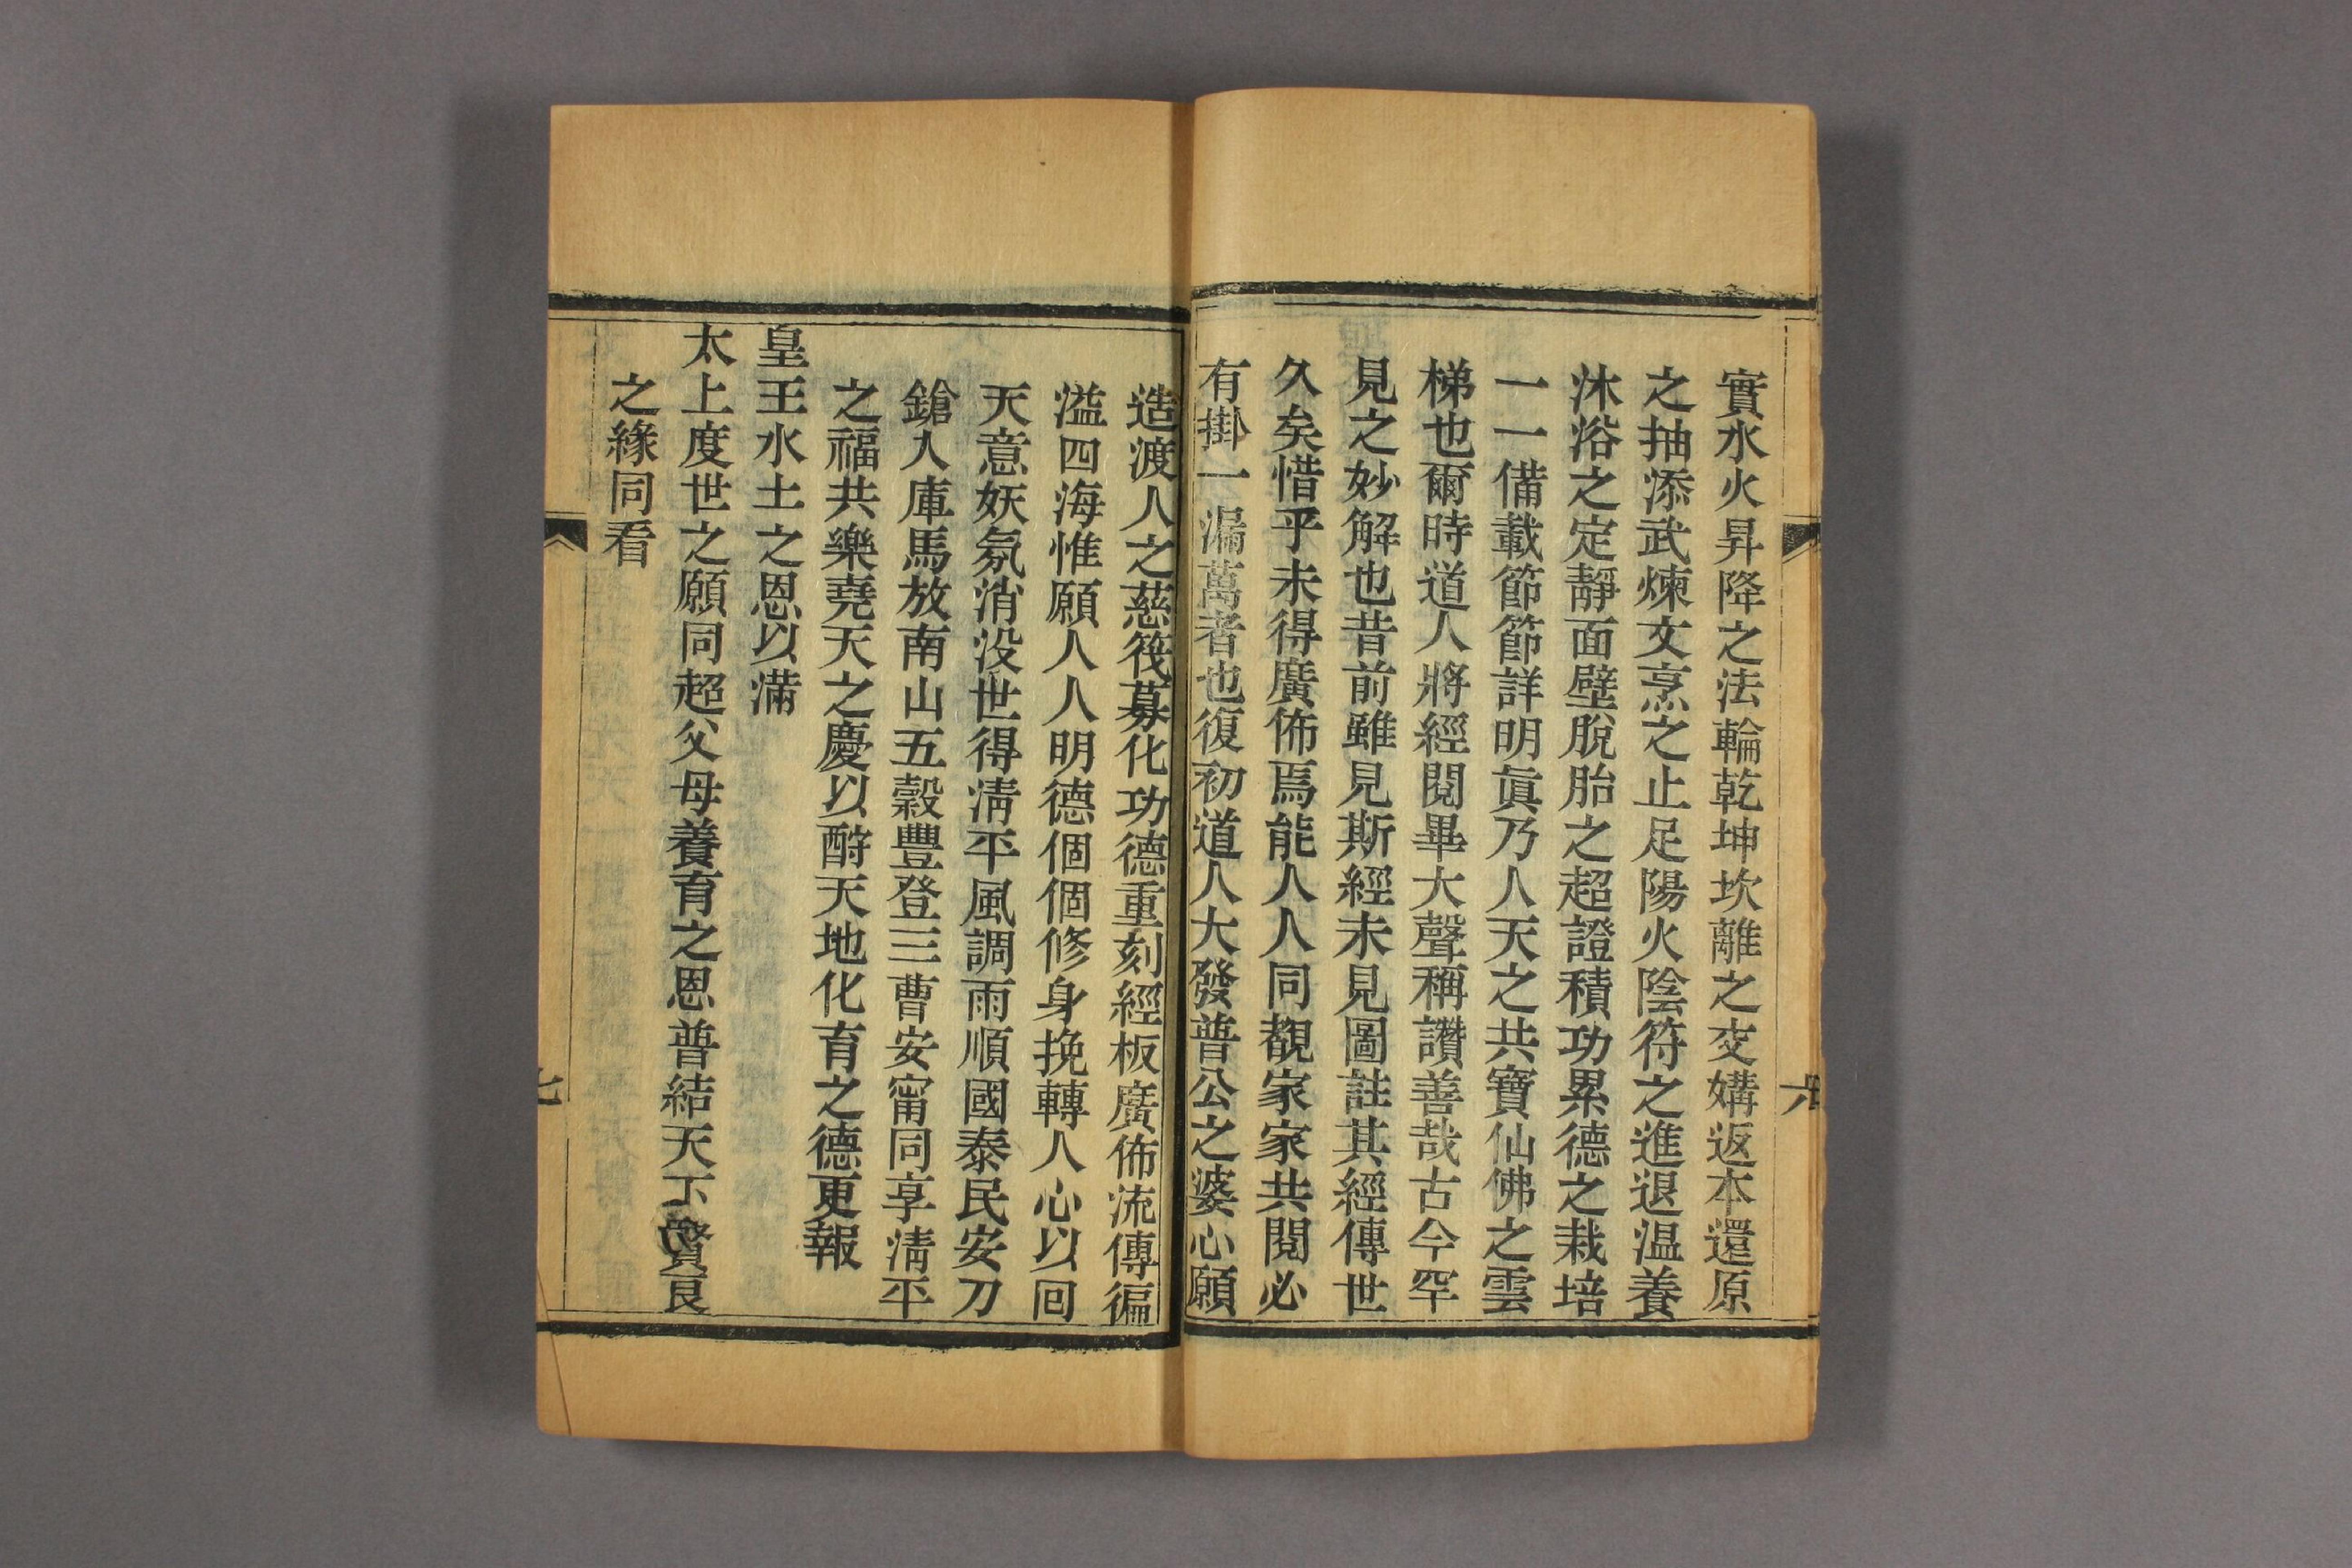 實水火昇降之法輪乾坤坎離之交媾返本還原
之抽添武煉文烹之止足陽火陰符之進退温養
沐浴之定靜面壁脫胎之超證積功累德之栽培
一一備載節節詳明眞乃人天之共寶仙佛之雲
梯也爾時道人將經閱畢大聲稱讚善哉古今罕
見之妙解也昔前雖見斯經未見圖註其經傳世
久矣惜乎未得廣佈焉能人人同覩家家共閱必
有掛一漏萬者也復初道人大發普公之婆心願
六
造渡人之慈筏募化功德重刻經板廣佈流傳徧
溢四海惟願人人明德個個修身挽轉人心以回
天意妖氛消没世得清平風調雨順國泰民安刀
鎗入庫馬放南山五穀豐登三曹安甯同享清平
之福共樂堯天之慶以酧天地化育之德更報
皇王水土之恩以滿
太上度世之願同超父母養育之恩普結天下賢良
之緣同看
七